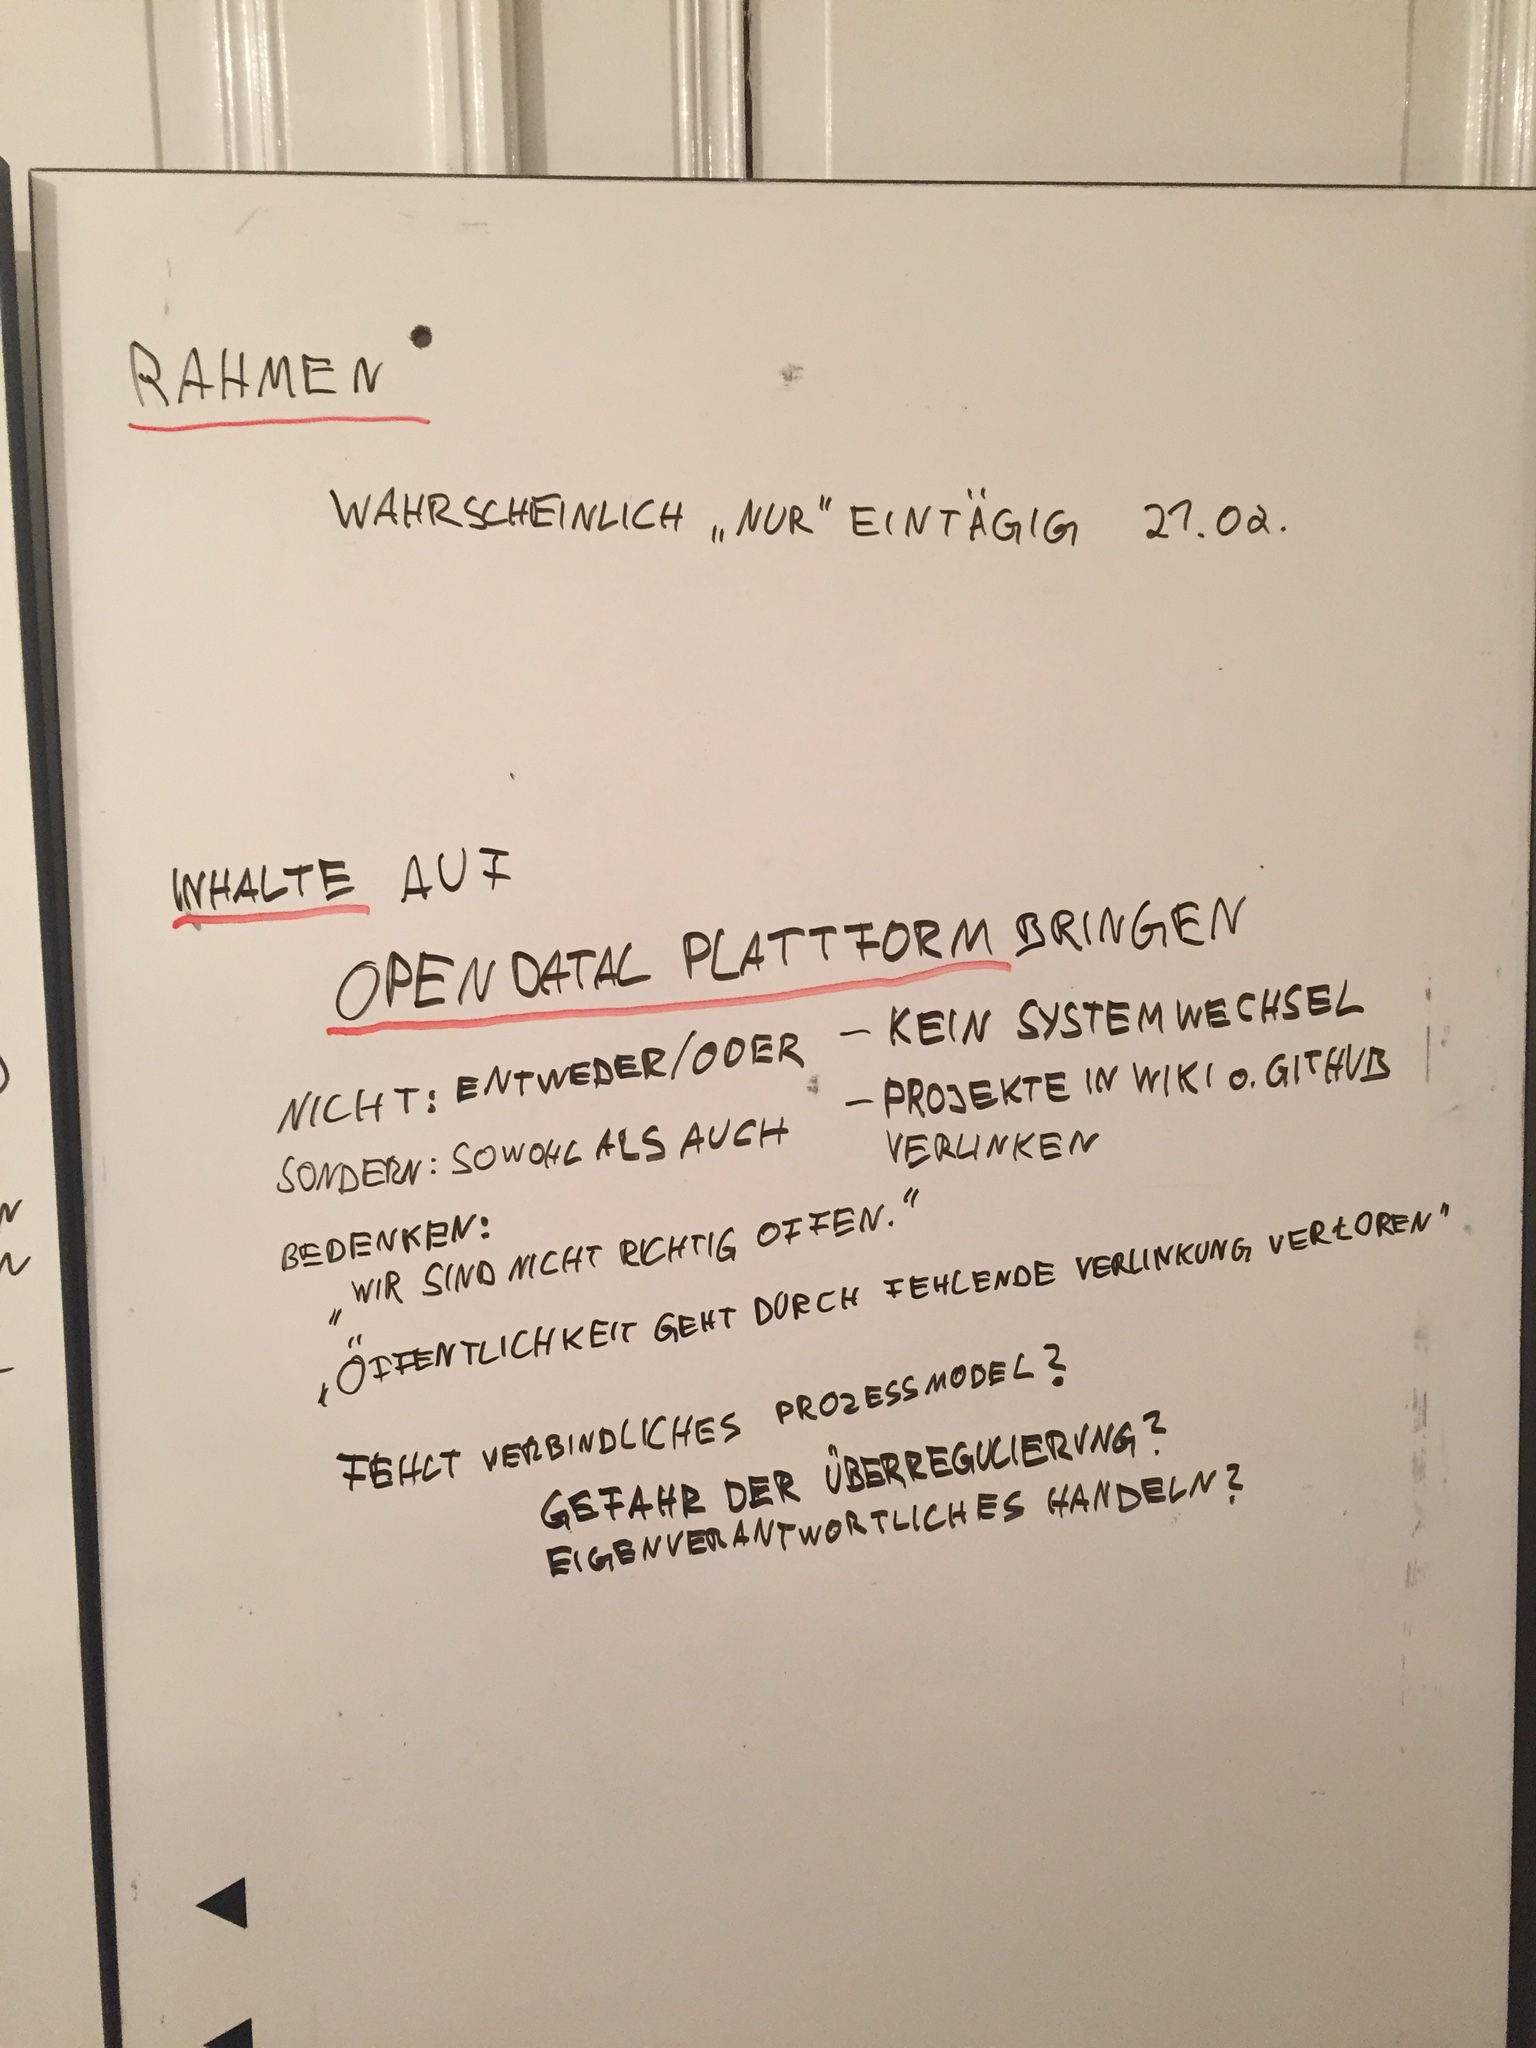 RAHMEN
WAHRSCHEINLICH „NUR“ EINTÄGIG 21.02.
INHALTE AUF
OPENDATAL PLATTFORM BRINGEN
NICHT: ENTWEDER/ODER
SONDERN: SOWOHL ALS AUCH
– KEIN SYSTEMWECHSEL
– PROJEKTE IN WIKI o. GITHUB
VERLINKEN
BEDENKEN:
„WIR SIND NICHT RICHTIG OFFEN.“
„ÖFFENTLICHKEIT GEHT DURCH FEHLENDE VERLINKUNG VERLOREN“
FEHLT VERBINDLICHES PROZESSMODEL?
GEFAHR DER ÜBERREGULIERUNG?
EIGENVERANTWORTLICHES HANDELN?